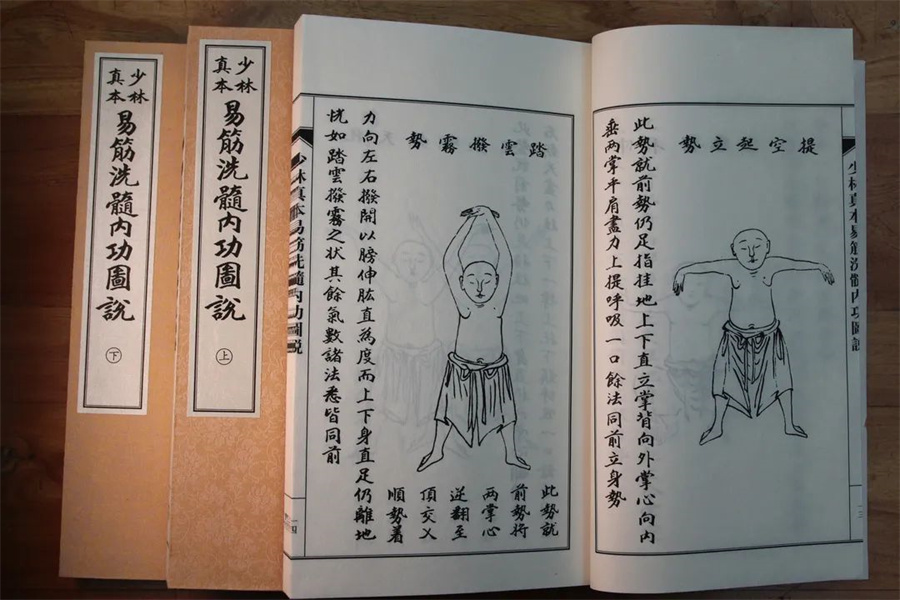 少林
真本
易筋洗髓内功圖說
下
少林
真本
易筋洗髓内功圖說
上
少林真本易筋洗髓内功圖說
提空起立勢
此勢就前勢仍足指挂地上下直立掌背向外掌心向内
垂两掌平肩盡力上提呼吸一口餘法同前立身勢
踏雲撥霧勢
此勢就
前勢将
两掌心
逆翻至
頂交乂
順勢着
力向左右撥開以膀伸肱直為度而上下身直足仍離地
恍如踏雲撥霧之状其餘氣數諸法悉皆同前
少林真本易筋洗髓内功圖説